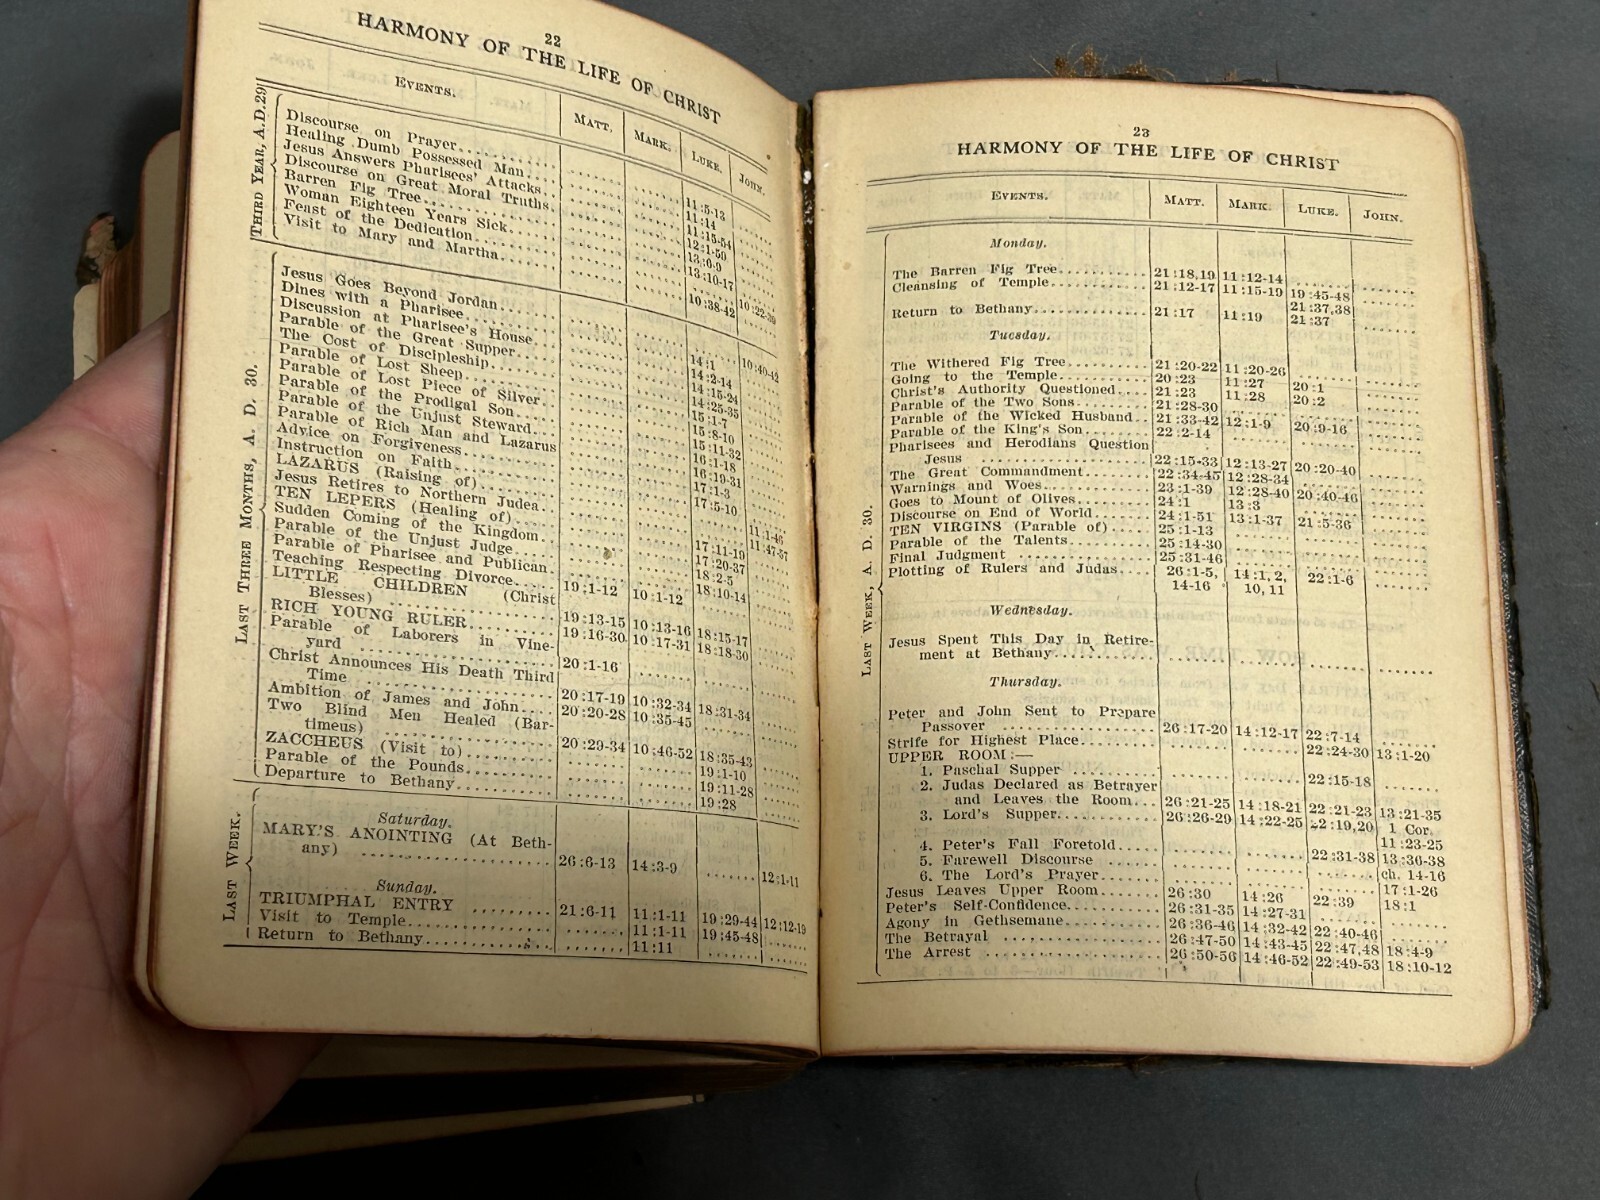 22
HARMONY OF THE LIFE OF CHRIST
EVENTS. MATT. MARK. LUKE. JOHN.
THIRD YEAR, A.D. 29
Discourse on Prayer........... ...... ...... 11:5-13 ......
Healing Dumb Possessed Man.... ...... ...... 11:14 ......
Jesus Answers Pharisees' Attacks. ...... ...... 11:15-54 ......
Discourse on Great Moral Truths. ...... ...... 12:1-59 ......
Barren Fig Tree............... ...... ...... 13:6-9 ......
Woman Eighteen Years Sick..... ...... ...... 13:10-17 ......
Feast of the Dedication....... ...... ...... ...... 10:22-39
Visit to Mary and Martha...... ...... ...... 10:38-42 ......
LAST THREE MONTHS, A. D. 30.
Jesus Goes Beyond Jordan...... ...... ...... ...... 10:40-42
Dines with a Pharisee......... ...... ...... 14:1 ......
Discussion at Pharisee's House. ...... ...... 14:2-14 ......
Parable of the Great Supper... ...... ...... 14:15-24 ......
The Cost of Discipleship...... ...... ...... 14:25-35 ......
Parable of Lost Sheep......... ...... ...... 15:1-7 ......
Parable of Lost Piece of Silver.. ...... ...... 15:8-10 ......
Parable of the Prodigal Son... ...... ...... 15:11-32 ......
Parable of the Unjust Steward.. ...... ...... 16:1-18 ......
Parable of Rich Man and Lazarus ...... ...... 16:19-31 ......
Advice on Forgiveness......... ...... ...... 17:1-3 ......
Instruction on Faith.......... ...... ...... 17:5-10 ......
LAZARUS (Raising of).......... ...... ...... ...... 11:1-46
Jesus Retires to Northern Judea.. ...... ...... ...... 11:47-57
TEN LEPERS (Healing of)....... ...... ...... 17:11-19 ......
Sudden Coming of the Kingdom.. ...... ...... 17:20-37 ......
Parable of the Unjust Judge... ...... ...... 18:2-5 ......
Parable of Pharisee and Publican. ...... ...... 18:10-14 ......
Teaching Respecting Divorce... 19:1-12 10:1-12 ...... ......
LITTLE CHILDREN (Christ
Blesses) ..................... 19:13-15 10:13-16 18:15-17 ......
RICH YOUNG RULER.......... 19:16-30 10:17-31 18:18-30 ......
Parable of Laborers in Vine-
yard ......................... 20:1-16 ...... ...... ......
Christ Announces His Death Third
Time ......................... 20:17-19 10:32-34 18:31-34 ......
Ambition of James and John.... 20:20-28 10:35-45 ...... ......
Two Blind Men Healed (Bar-
timeus) ...................... 20:29-34 10:46-52 18:35-43 ......
ZACCHEUS (Visit to).......... ...... ...... 19:1-10 ......
Parable of the Pounds......... ...... ...... 19:11-28 ......
Departure to Bethany.......... ...... ...... 19:28 ......
LAST WEEK.
Saturday.
MARY'S ANOINTING (At Beth-
any) ......................... 26:6-13 14:3-9 ...... 12:1-11
Sunday.
TRIUMPHAL ENTRY ......... 21:6-11 11:1-11 19:29-44 12:12-19
Visit to Temple............... ...... 11:1-11 19:45-48 ......
Return to Bethany............. ...... 11:11 ...... ......
23
HARMONY OF THE LIFE OF CHRIST
EVENTS. MATT. MARK. LUKE. JOHN.
LAST WEEK, A. D. 30.
Monday.
The Barren Fig Tree........... 21:18,19 11:12-14 ...... ......
Cleansing of Temple........... 21:12-17 11:15-19 19:45-48 ......
21:37,38
Return to Bethany............. 21:17 11:19 21:37 ......
Tuesday.
The Withered Fig Tree......... 21:20-22 11:20-26 ...... ......
Going to the Temple........... 20:23 11:27 20:1 ......
Christ's Authority Questioned.... 21:23 11:28 20:2 ......
Parable of the Two Sons....... 21:28-30 ...... ...... ......
Parable of the Wicked Husband.. 21:33-42 12:1-9 20:9-16 ......
Parable of the King's Son..... 22:2-14 ...... ...... ......
Pharisees and Herodians Question
Jesus ........................ 22:15-33 12:13-27 20:20-40 ......
The Great Commandment......... 22:34-45 12:28-34 ...... ......
Warnings and Woes............. 23:1-39 12:28-40 20:40-46 ......
Goes to Mount of Olives....... 24:1 13:3 ...... ......
Discourse on End of World..... 24:1-51 13:1-37 21:5-36 ......
TEN VIRGINS (Parable of)..... 25:1-13 ...... ...... ......
Parable of the Talents........ 25:14-30 ...... ...... ......
Final Judgment ............... 25:31-46 ...... ...... ......
Plotting of Rulers and Judas.... 26:1-5, 14:1, 2, 22:1-6 ......
14-16 10, 11
Wednesday.
Jesus Spent This Day in Retire-
ment at Bethany............... ...... ...... ...... ......
Thursday.
Peter and John Sent to Prepare
Passover ..................... 26:17-20 14:12-17 22:7-14 ......
Strife for Highest Place...... ...... ...... 22:24-30 13:1-20
UPPER ROOM:—
1. Paschal Supper ............ ...... ...... 22:15-18 ......
2. Judas Declared as Betrayer
and Leaves the Room... 26:21-25 14:18-21 22:21-23 13:21-35
3. Lord's Supper.............. 26:26-29 14:22-25 22:19,20 1 Cor.
11:23-25
4. Peter's Fall Foretold...... ...... ...... 22:31-38 13:36-38
5. Farewell Discourse ........ ...... ...... ...... ch. 14-16
6. The Lord's Prayer.......... ...... ...... ...... 17:1-26
Jesus Leaves Upper Room....... 26:30 14:26 22:39 18:1
Peter's Self-Confidence....... 26:31-35 14:27-31 ...... ......
Agony in Gethsemane........... 26:36-46 14:32-42 22:40-46 ......
The Betrayal ................. 26:47-50 14:43-45 22:47,48 18:4-9
The Arrest ................... 26:50-56 14:46-52 22:49-53 18:10-12